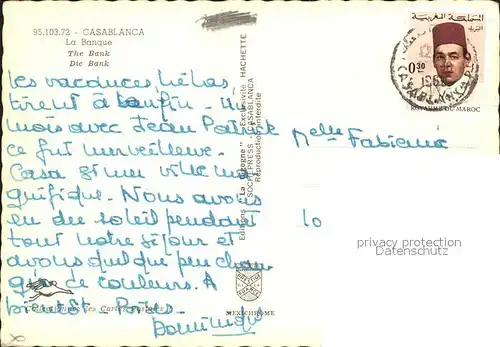 95.103.72 - CASABLANCA
La Banque
The Bank
Die Bank
les vacances hélas
tirent à la fin - Un
mois avec Jean Patrick
ce fut merveilleux.
Casa est une ville ma
gnifique. Nous avons
eu du soleil pendant
tout notre séjour et
avons quelque peu chan
gé de couleurs. A
bientôt - Bises.
Dominique
Collection des Cartes Postales
Editions "La Cigogne" - Exclusivité HACHETTE
SOCHEPRESS - CASABLANCA
Reproduction interdite
MEXICHROME
المملكة المغربية
0,30
ROYAUME DU MAROC
CASABLANCA
Melle Fabienne
10
privacy protection
Datenschutz